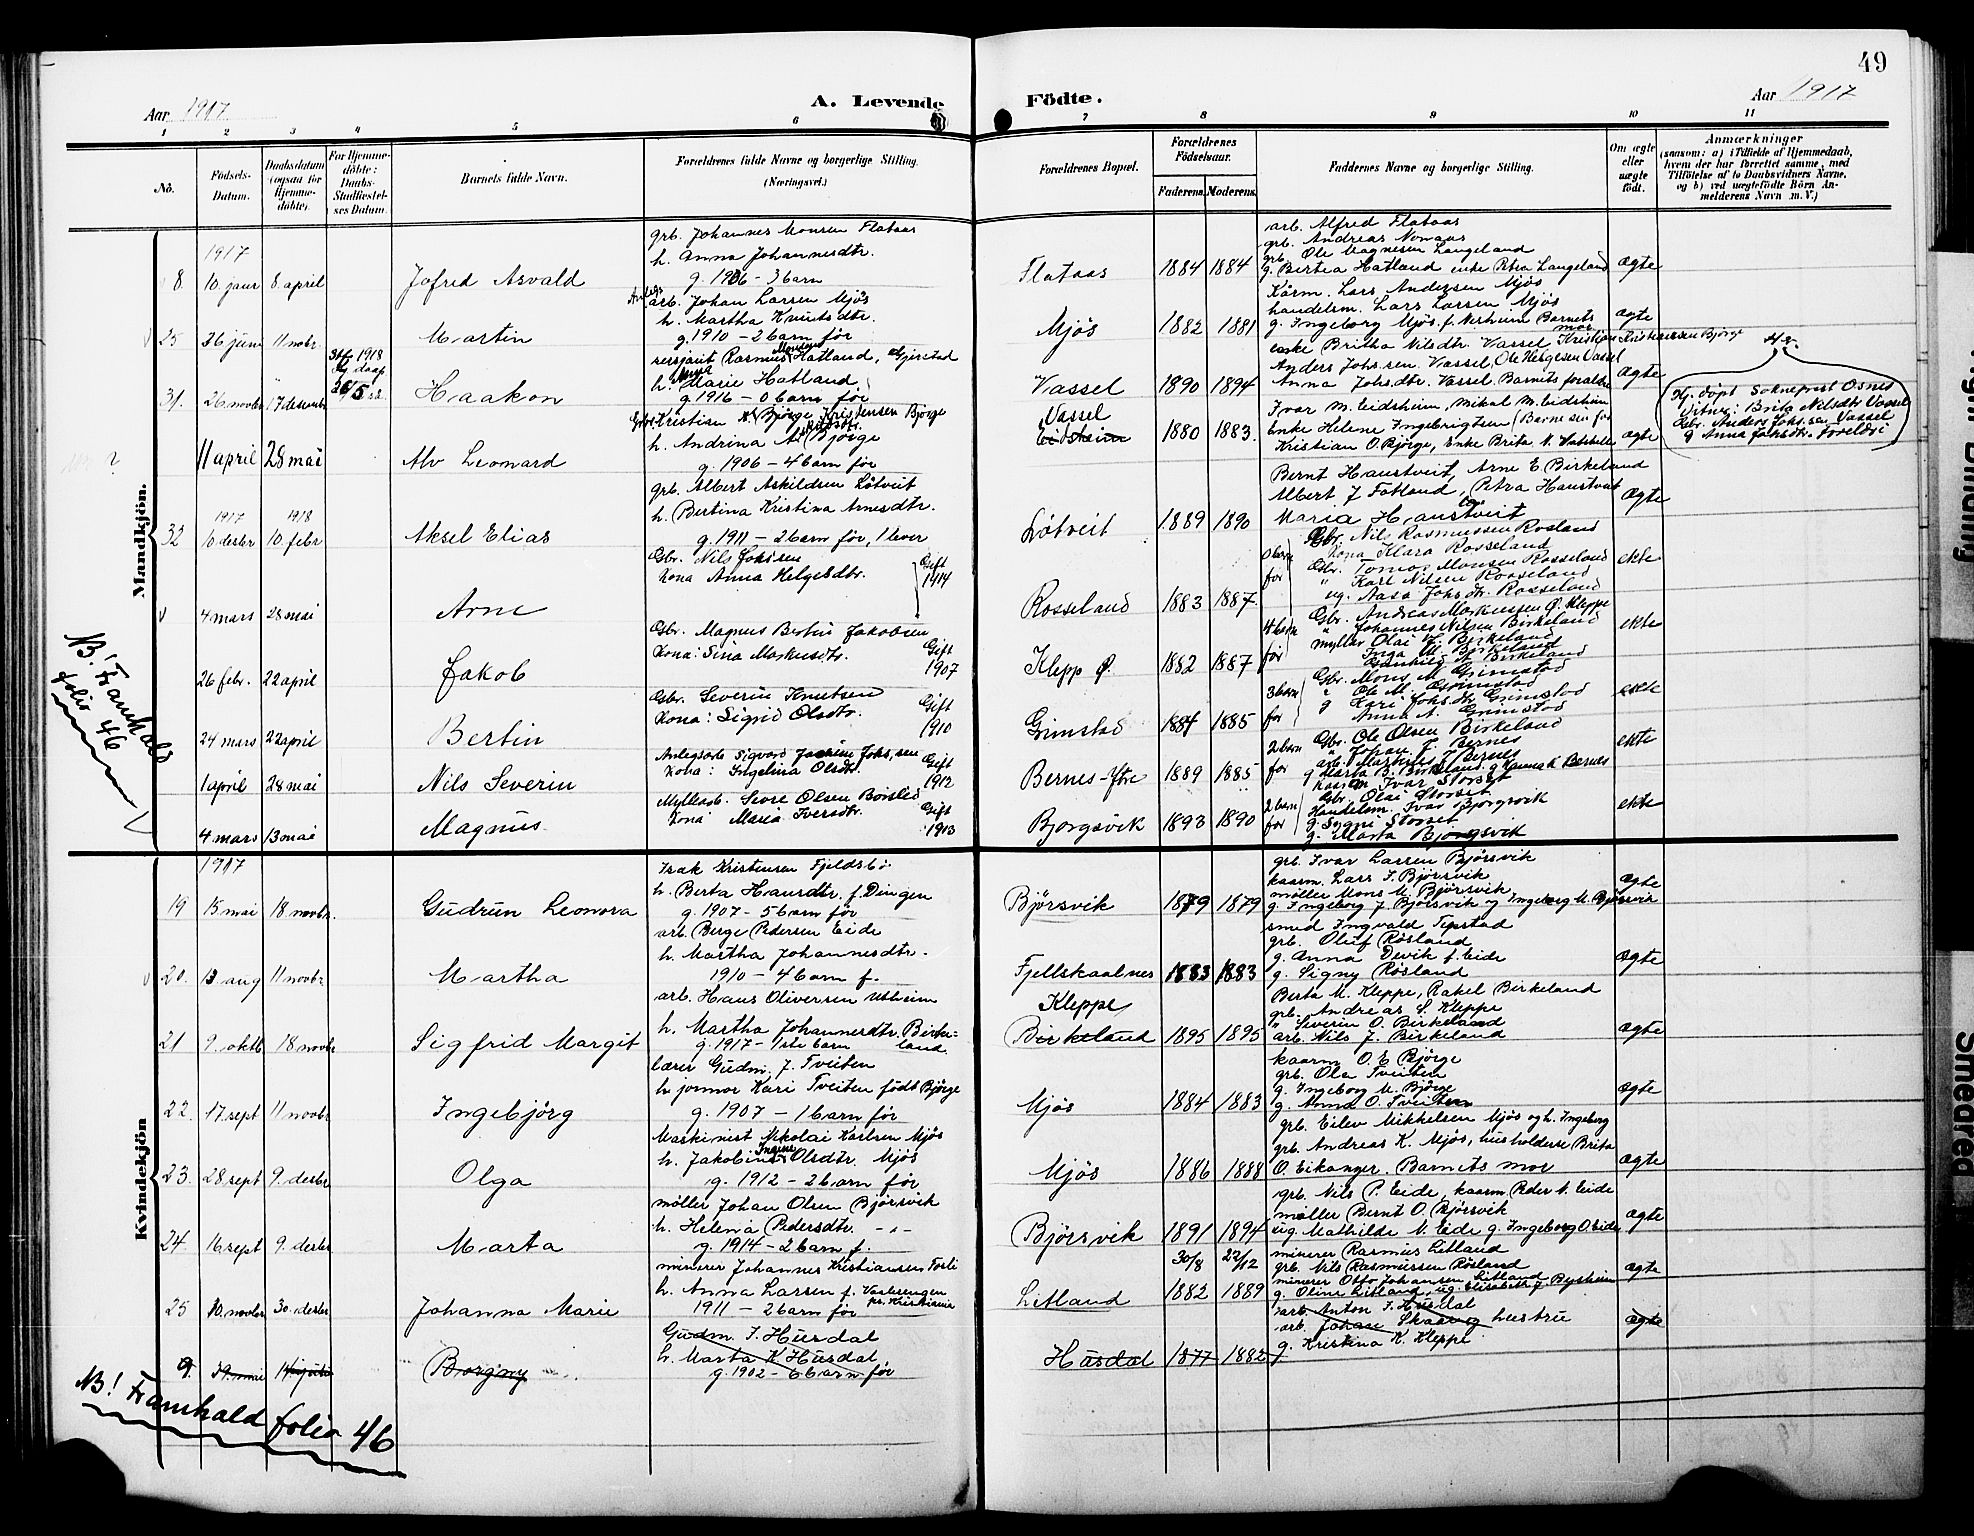 49
Aar 1917
A. Levende
Födte.
Aar 1917
1 2 3 4 5 6 7 8 9 10 11
No.
Födsels-
Datum.
Daabsdatum
(ogsaa for
Hjemme-
döbte).
For Hjemme-
döbte:
Daabs-
Stadfæstel-
ses Datum.
Barnets fulde Navn.
Forældrenes fulde Navne og borgerlige Stilling.
(Næringsvei.)
Forældrenes Bopæl.
Forældrenes
Födselsaar.
Faderens. Moderens.
Faddernes Navne og borgerlige Stilling.
Om ægte
eller
uægte
födt.
Anmærkninger
(saasom: a) i Tilfælde af Hjemmedaab,
hvem der har forrettet samme, med
Tilföielse af to Daabsvidners Navne,
og b) ved uægtefödte Börn An-
melderens Navn m. V.)
Mandkjön.
1917
8. 10. januar 8. april
Jofred Asvald
grb. Johannes Monsen Flataas
h. Anna Johannesdtr.
g. 1906 - 3 barn
Flataas 1884 1884
arb. Alfred Flataas
grb. Andreas
grb. Ole Magnesen Langeland
g. Bertea Hatland enke Petra Langeland
ægte
25 26 juni 11 nobr.
Martin
arb. Johan Larsen Mjøs
h. Martha Knutsdtr.
g. 1910 - 2 barn før
Mjøs 1882 1881
Kårm. Lars Andersen Mjøs
handelsm. Lars Larsen Mjøs
g. Ingeborg Mjøs f. Barnets
mor
ægte
31. 26 novbr 17 desember
1918
daap
Haakon
sersjant Rasmus Monsen Hatland, Gjerstad
h. Anna Marie Hatland
g. 1916 - 0 barn før
Vassel 1890 1894
enke Britha Nilsdtr. Vassel, Kristian Kristiansen Bjørge
Anders Johs.sen Vassel, Ole Helgesen Vassel
Anna Johsdtr. Vassel. Barnets foreldre
ægte
Hj. døpt Sokneprest Osnes
Vitner: Brita Nilsdtr Vassel
Gbr. Anders Johs.sen Vassel
g Anna Johsdtr. Foreldri
11 april 28 mai
Alv Leonard
Gbr. Kristian Kristensen Bjørge
h. Andrina Bjørge
g. 1906 - 4 barn før
Vassel
Eidsheim 1880 1883.
Ivar M. Eidsheim, Mikal M. Eidsheim
Enke Helene Ingebrigtsen
Kristian O. Bjørge, Enke Brita N.
ægte
1917 1918
32 10. desbr 10. febr
Aksel Elias
grb. Albert Askildsen Løtveit
h. Bertina Kristina Arnesdtr.
g. 1911 - 2 barn før, 1 lever
Løtveit 1889 1890
Bernt Haustveit, Arne E. Birkeland
Albert J Fatland, Petra Haustveit
Maria Haustveit
ægte
4 mars 28 mai
Arne
Gbr. Nils Johs.sen
Kona Anna Helgesdtr.
Gift
1914
Rosseland 1883 1887.
0 barn
før
Gbr. Nils Rasmussen Rosland
Kona Klara Rosseland
Gbr. Tomas Monsen Rosseland
" Karl Nilsen Rosseland
ug. Aasa Johsdtr. Rosseland
ekte
26 febr. 22 april
Jakob
Gbr. Magnus Bertin Jakobsen
Kona: Sina Markusdtr.
Gift
1907
Klepp Ø. 1882 1887
4 barn
før
Gbr. Andreas Markussen Ø. Kleppe
" Johannes Nilsen Birkeland
myllar Olai H. Birkeland
Inga M. Birkeland
Birkeland
ekte
24 mars 22 april
Bertin
Gbr. Severin Knutsen
Kona: Sigrid Olsdtr.
Gift
1910
Grimstad 1884 1885
3 barn
før
Gbr. Mons M Grimstad
" Ole M. Grimstad
g Kari Johsdtr Grimstad
Anna A. Grimstad
ekte
1 april 28 mai
Nils Severin
Anlegsarb. Sigvard Johs.sen
Kona: Ingelina Olsdtr.
Gift
1912
Bernes-Ytre 1889 1885
2 barn
før
Gbr. Ole Olsen Birkeland
" Johan J. Bernes
arb. Markus J Bernes
g Marta B. Birkeland. g Hanna K Bernes
ekte
4 mars 13 mai
Magnus.
Myllearb. Sevre Olsen
Kona Maria Iversdtr.
Gift
1913
Bjorgsvik 1893 1890
2 barn
før
Kaarm Ivar Storset
Gbr. Olai Storset
Handelsm. Ivar Bjorgsvik
g: Signi Storset
g. Marta Bjorgsvik
ekte
NB! Framhald
folio 46
Kvindekjön
1917
19 15 mai 18 novbr.
Gudrun Leonora
Isak Kristensen Fjeldsbø
h. Berta Hansdtr. f. Dingen
g. 1907 - 5 barn før
Bjørsvik 1879 1879
grb. Ivar Larsen Bjørsvik
kaarm. Lars I. Bjørsvik
møller Mons M. Bjørsvik
g. Ingeborg J Bjørsvik og Ingeborg M. Bjørsvik
ægte
20. 13 aug 11 novbr
Martha
arb. Berge Pedersen Eide
h. Martha Johannesdtr.
1910 - 4 barn f.
Fjellskaalnes 1883 1883
smed Ingvald Tepstad
grb. Oluf Røsland
g. Anna Devik f. Eide
g. Signy Røsland
ægte
21 9. oktb 18 novbr
Sigfrid Margit
arb. Hans Oliversen Utheim
h. Martha Johannesdtr. Birke-
land
g. 1917 - 1ste barn
Kleppe
Birkeland 1895 1895
Berta M. Kleppe, Rakel Birkeland
grb. Andreas S. Kleppe
" Severin O. Birkeland
arb. Nils J. Birkeland
ægte
22. 17. sept 11 novbr
Ingebjörg
lærer Gudm. J. Tveiten
h. jormor Kari Tveiten født Bjørge
g. 1907 - 1 barn før
Mjøs 1884 1883
kaarm O. E Bjørge
grb. Ola Tveiten
g. Ingeborg M. Bjørge
g. Anna O. Tveiten
ægte
23. 28 sept 9. desbr
Olga
Maskinist Nikolai Karlsen Mjøs
h. Jakobina Olsdtr. Mjøs
g. 1912 - 2 barn før
Mjøs 1886 1888
grb. Eilev Mikkelsen Mjøs og h. Ingeborg
grb. Andreas K. Mjøs, husholderske Brita
O. Eikanger. Barnets mor
ægte
24. 16 sept 9. desbr
Marta
møller Johan Olsen Bjørsvik
h. Helena Pedersdtr. - " -
g. 1914 - 2 barn f.
Bjørsvik 1891 1894
grb. Nils P. Eide, kaarm Peder N. Eide
møller Bernt O. Bjørsvik
ug. Mathilde N. Eide g. Ingeborg O Eide
ægte
25 10. novbr 30. desbr
Johanna Marie
minerer Johannes Kristiansen Fosli
h. Anna Larsen f. Vaalerengen
pr. Kristiania
1911 - 2 barn før
30/8 22/12
Litland 1882 1889
minerer Rasmus Litland
grb. Nils Rasmussen Røsland
minerer Otto Johansen Litland
g. Oline Litland, ug. Elisabeth J. Bysheim
ægte
9. 29. mai 14 juli
Borgny
Gudm. I. Husdal
h. Marta K Husdal
g. 1902 - 6 barn før
Husdal 1877 1882
arb. Anton I. Husdal
arb. Johan Skaar og hustru
g. Kristina K. Kleppe
ægte
NB! Framhald folio 46